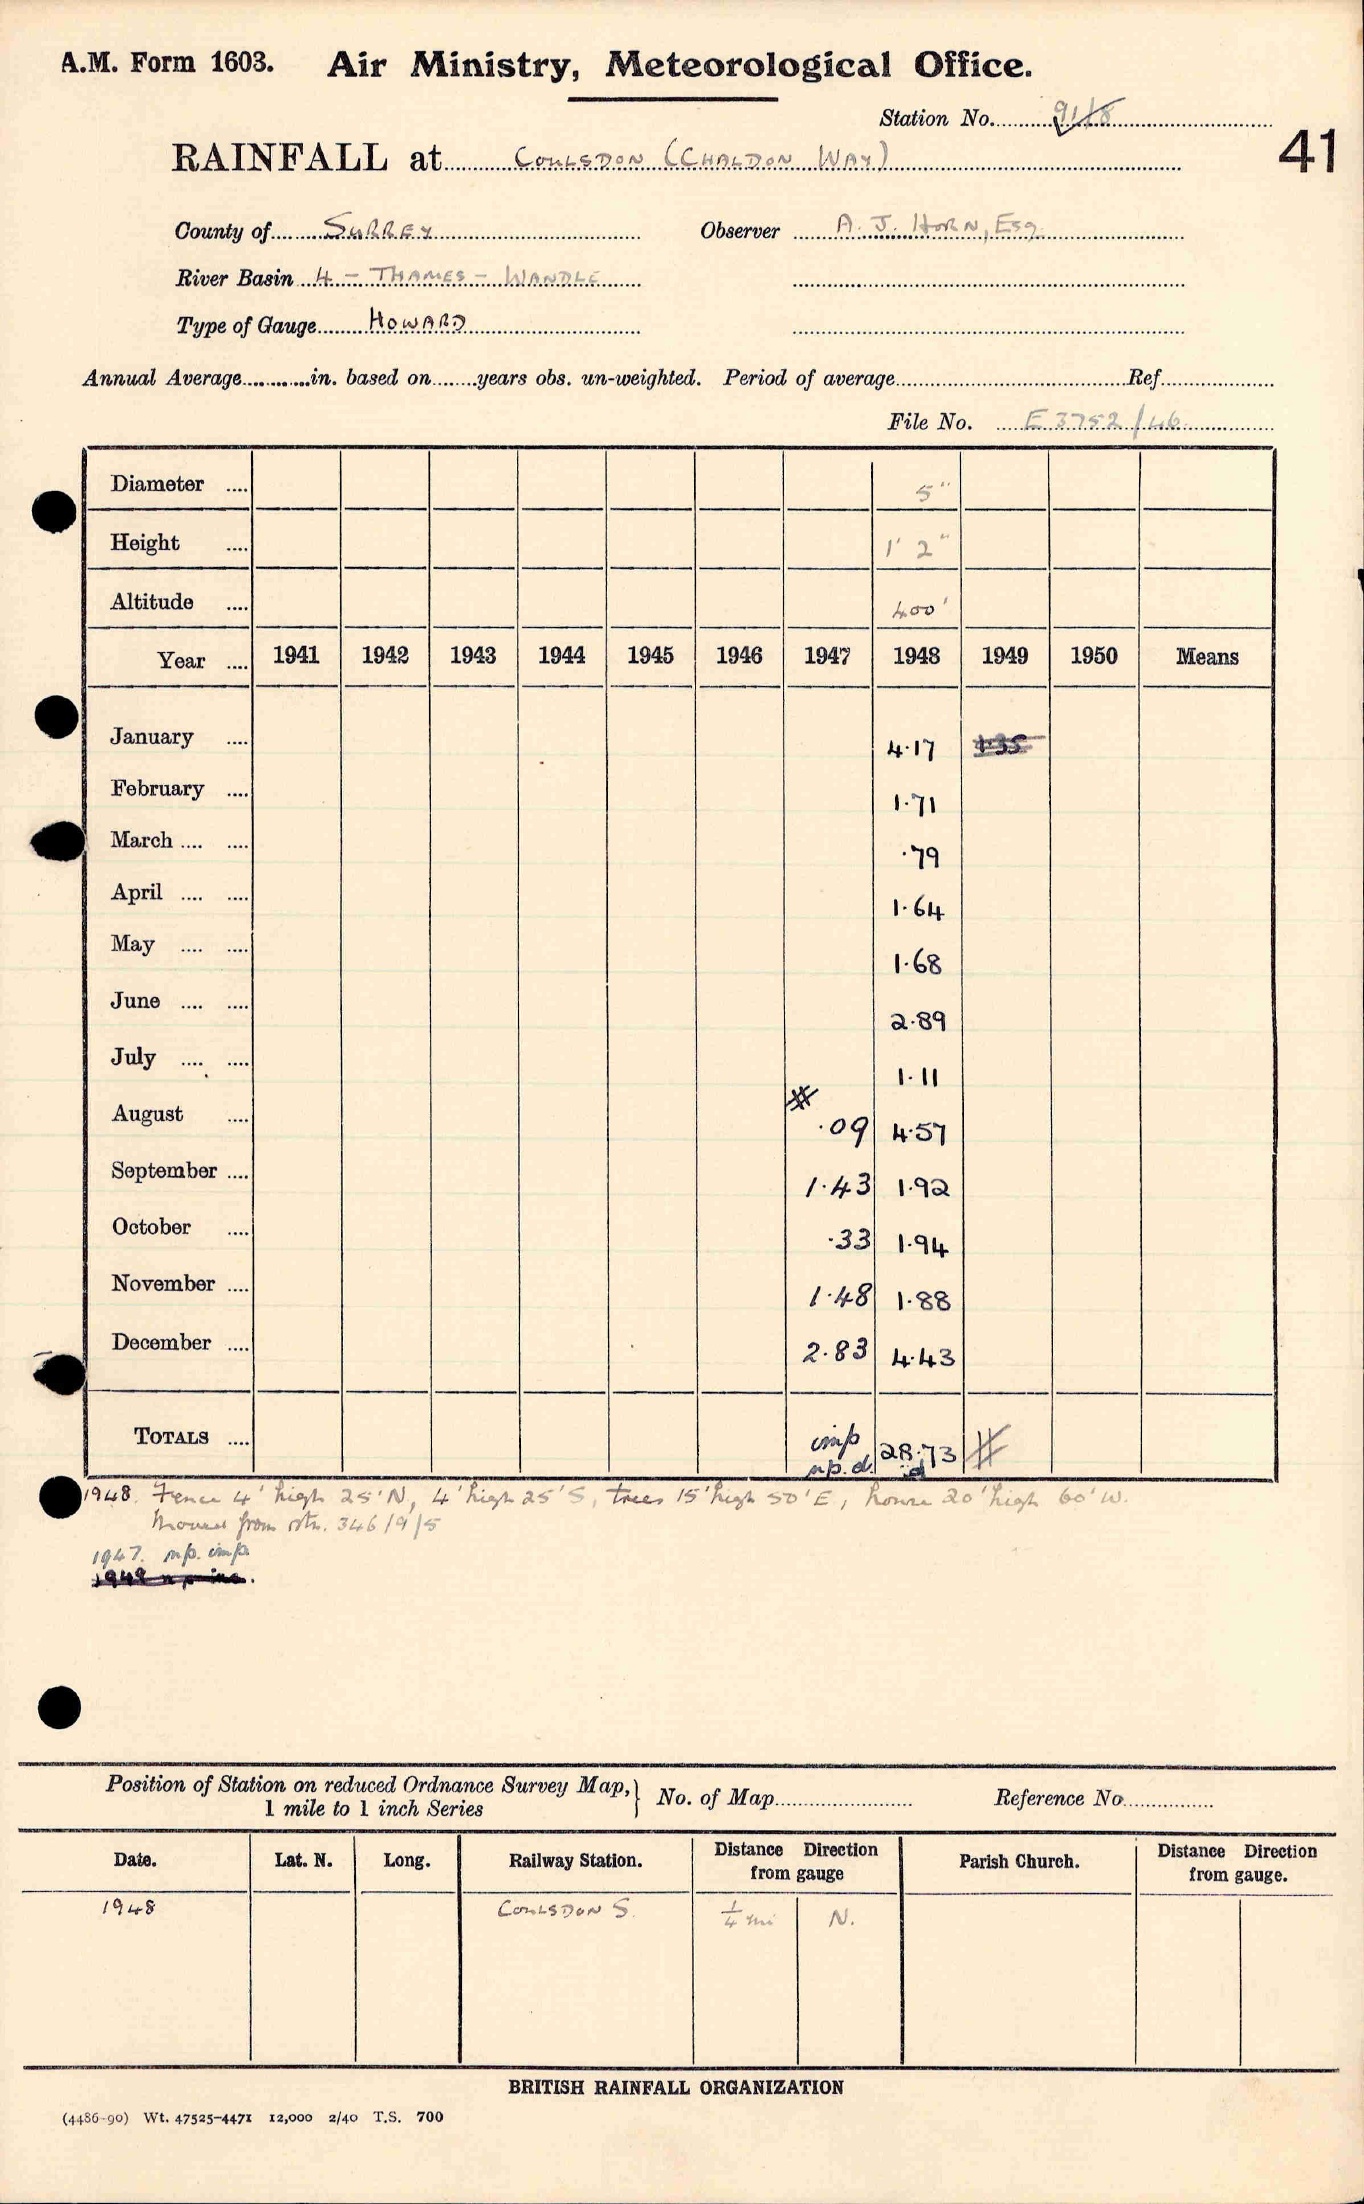 A.M. Form 1603. Air Ministry, Meteorological Office.
Station No. 91/8
41
RAINFALL at COULSDON (CHALDON WAY)
County of SURREY Observer A. J. HORN, Esq.
River Basin 4 - THAMES - WANDLE
Type of Gauge HOWARD
Annual Average in. based on years obs. un-weighted. Period of average Ref
File No. E 3752/46.
Diameter .... 5"
Height .... 1' 2"
Altitude .... 400'
Year .... 1941 1942 1943 1944 1945 1946 1947 1948 1949 1950 Means
January .... 4.17 1.35
February .... 1.71
March .... .... .79
April .... .... 1.64
May .... .... 1.68
June .... .... 2.89
July .... .... 1.11
August .... .09 4.57
September .... 1.43 1.92
October .... .33 1.94
November .... 1.48 1.88
December .... 2.83 4.43
TOTALS .... imp 28.73
n.p. d. d
1948. Fence 4' high 25' N, 4' high 25' S, trees 15' high 50' E, house 20' high 60' W.
Moved from stn. 346/9/5
1947. n.p. imp
1948 n p inc.
Position of Station on reduced Ordnance Survey Map, } No. of Map Reference No
1 mile to 1 inch Series
Date. Lat. N. Long. Railway Station. Distance Direction from gauge Parish Church. Distance Direction from gauge.
1948 COULSDON S. 1/4 mi N.
BRITISH RAINFALL ORGANIZATION
(4486-90) Wt. 47525-4471 12,000 2/40 T.S. 700